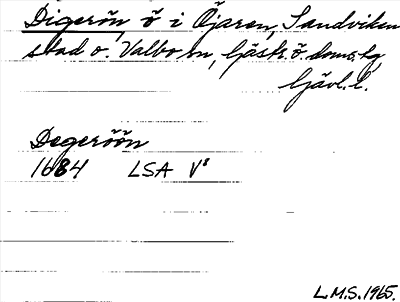 Digerön, ö i Öjaren, Sandviken
stad o. Valbo sn, Gästr. ö. doms.tg,
Gävl. l.
Degeröön
1684 LSA V⁸
L.M.S. 1965.